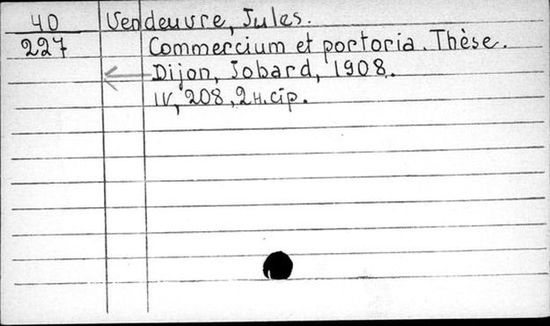 40 Vendeuvre, Jules.
227 Commercium et portoria. Thèse.
Dijon, Jobard, 1908.
IV, 208, 2 н. стр.